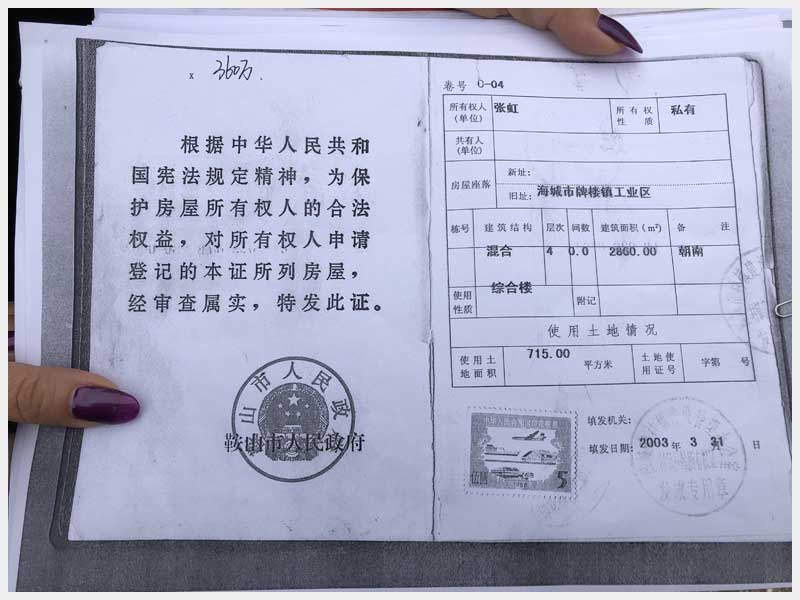 x 360万.
根据中华人民共和
国宪法规定精神，为保
护房屋所有权人的合法
权益，对所有权人申请
登记的本证所列房屋，
经审查属实，特发此证。
山市人民政
鞍山市人民政府
卷号 0-04
所有权人(单位) 张虹 所有权性质 私有
共有人(单位)
房屋座落 新址:
旧址: 海城市牌楼镇工业区
栋号 建筑结构 层次 间数 建筑面积(m²) 备注
混合 4 0.0 2860.00 朝南
使用性质 综合楼 附记
使用土地情况
使用土地面积 715.00 平方米 土地使用证号 字第 号
伍圆 5
填发机关:
填发日期: 2003 年 3 月 31 日
发证专用章